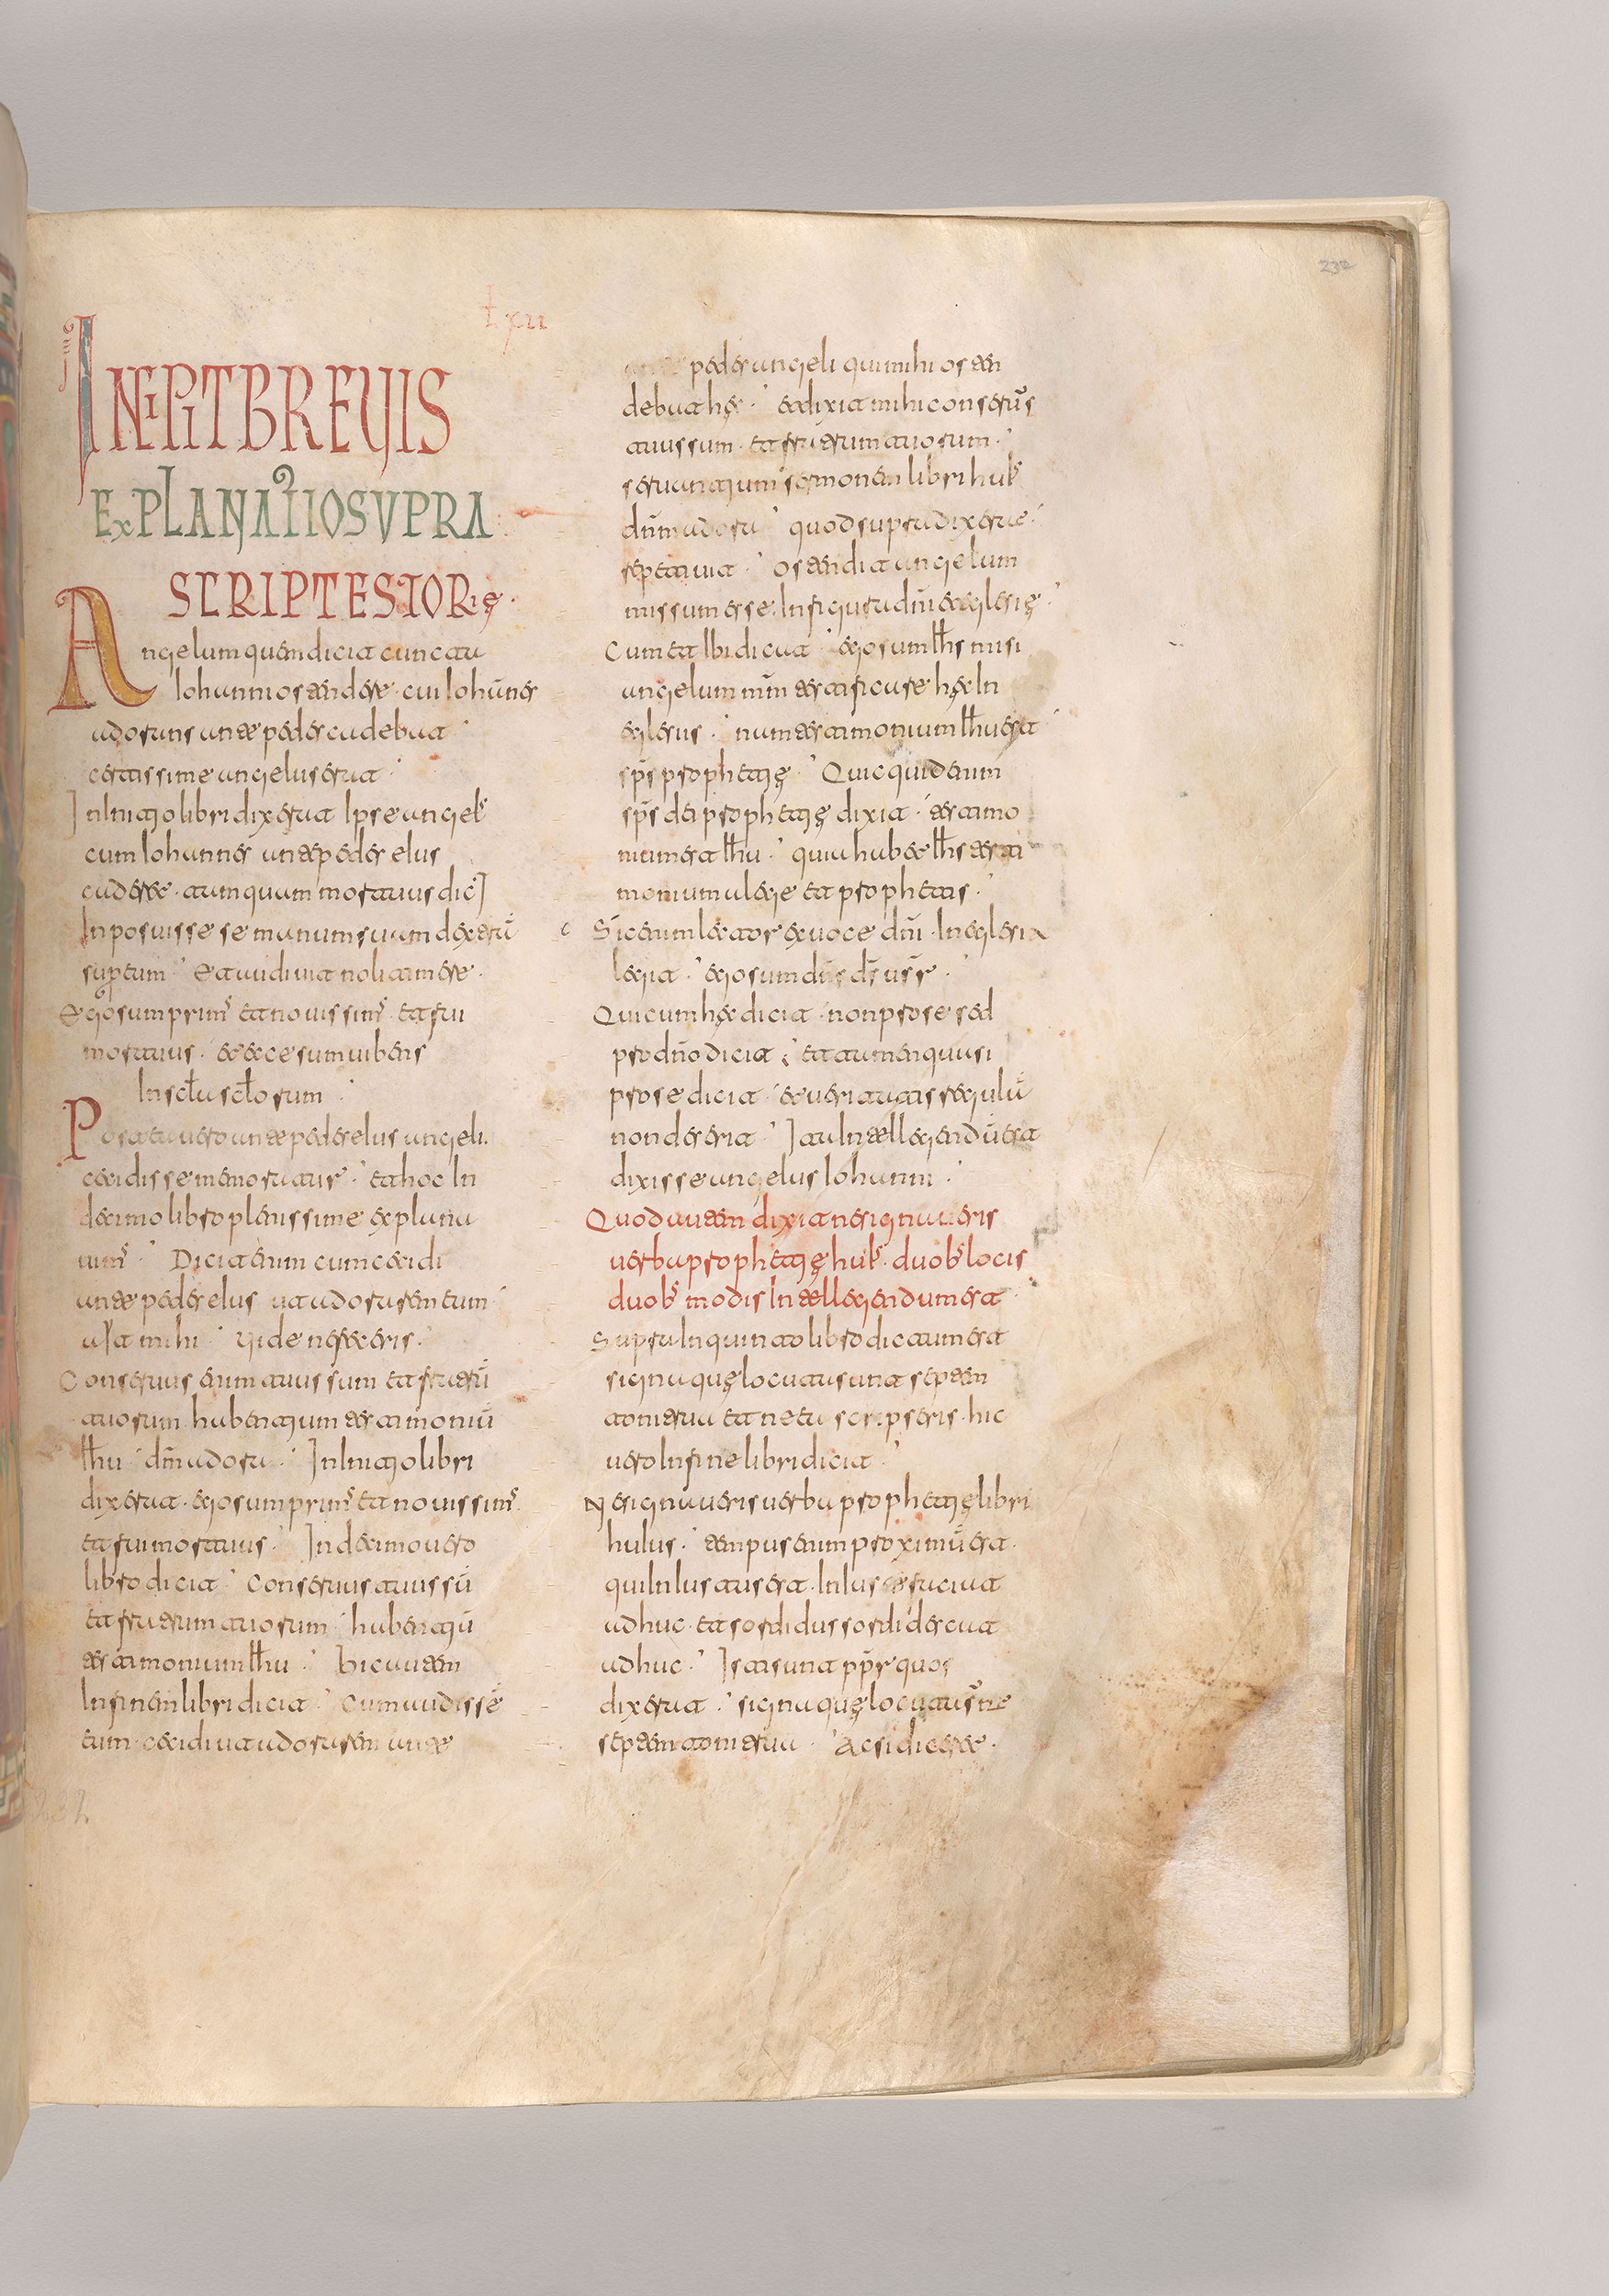 lxii
INCIPIT BREUIS
EXPLANATIO SUPRA
SCRIPTE STORIę
Angelum quem dicit cuncta
Iohanni ostendere · cui Iohannes
adorans ante pedes cadebat
certissime angelus erat
In initio libri dixerat ipse angels
cum Iohannes ante pedes eius
caderet · tamquam mortuus dicit
Inposuisse se manum suam dexterā
super eum et audivit noli timere ·
Ego sum prims et novissims et fui
mortuus · et ecce sum vibens
In scła scłorum
Postea vero ante pedes eius angeli
cecidisse memoratur · et hoc in
decimo libro plenissime explana
vims · Dicit enim cum cecidi
ante pedes eius ut adorarem eum
ait mihi vide ne feceris
Conservus enim tuus sum et fratrū
tuorum habentium testimoniū
Ihu dnm adora · In initio libri
dixerat · ego sum prims et novissims
et fui mortuus · In decimo vero
libro dicit · conservus tuus sū
et fratrum tuorum habentiū
testimonium Ihu · hic autem
In finem libri dicit · Cum audissē
eum cecidi ut adorarem ante
pedes angeli qui mihi osten
debat hęc · et dixit mihi conservs
tuus sum · et fratrum tuorum ·
servantium sermonem libri huis
dnm adora quod supra dixerat
repetavit · ostendit angelum
missum esse in figura dni et eglesię
Cum et ibi dicat ego sum Ihs misi
angelum mm testificare hęc in
eglesiis · nam testimonium Ihu est
sps prophetię · Quicquid enim
sps dei prophetię dixit · testimo
nium est Ihu · quia habet Ihs testi
monium a lege et prophetis ·
Sic enim lector ex voce dni · in eglesia
legit · ego sum dns ds usr ·
Qui cum hęc dicit · non pro se sed
pro dno dicit · et tamen quasi
pro se dicit · et veritatis regulā
non deserit · Ita intellegendū est
dixisse angelus Iohanni ·
Quod autem dixit ne signaveris
verba prophetię huis · duobs locis
duobs modis intellegendum est ·
Supra in quinto libro dictum est
signa quę locuta sunt septem
tonitrua et ne ea scripseris · hic
vero in fine libri dicit
Ne signaveris verba prophetię libri
huius · tempus enim proximū est ·
qui iniustus est · iniuste faciat
adhuc et sordidus sordidescat
adhuc · Isti sunt ppr quos
dixerat · signa quę locuta snt
septem tonitrua · Ac si diceret ·